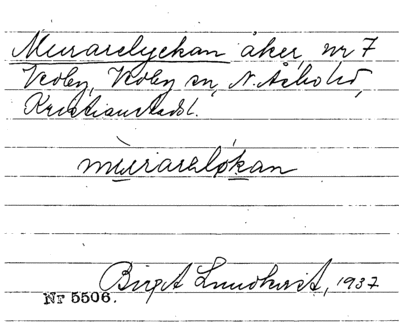 Murarelyckan åker, nr 7
Vedby, Vedby sn, N. Åsbo hd,
Kristianstads l.
mùrarelo̢kan
Birgit Lundkvist, 1937
Nr 5506.